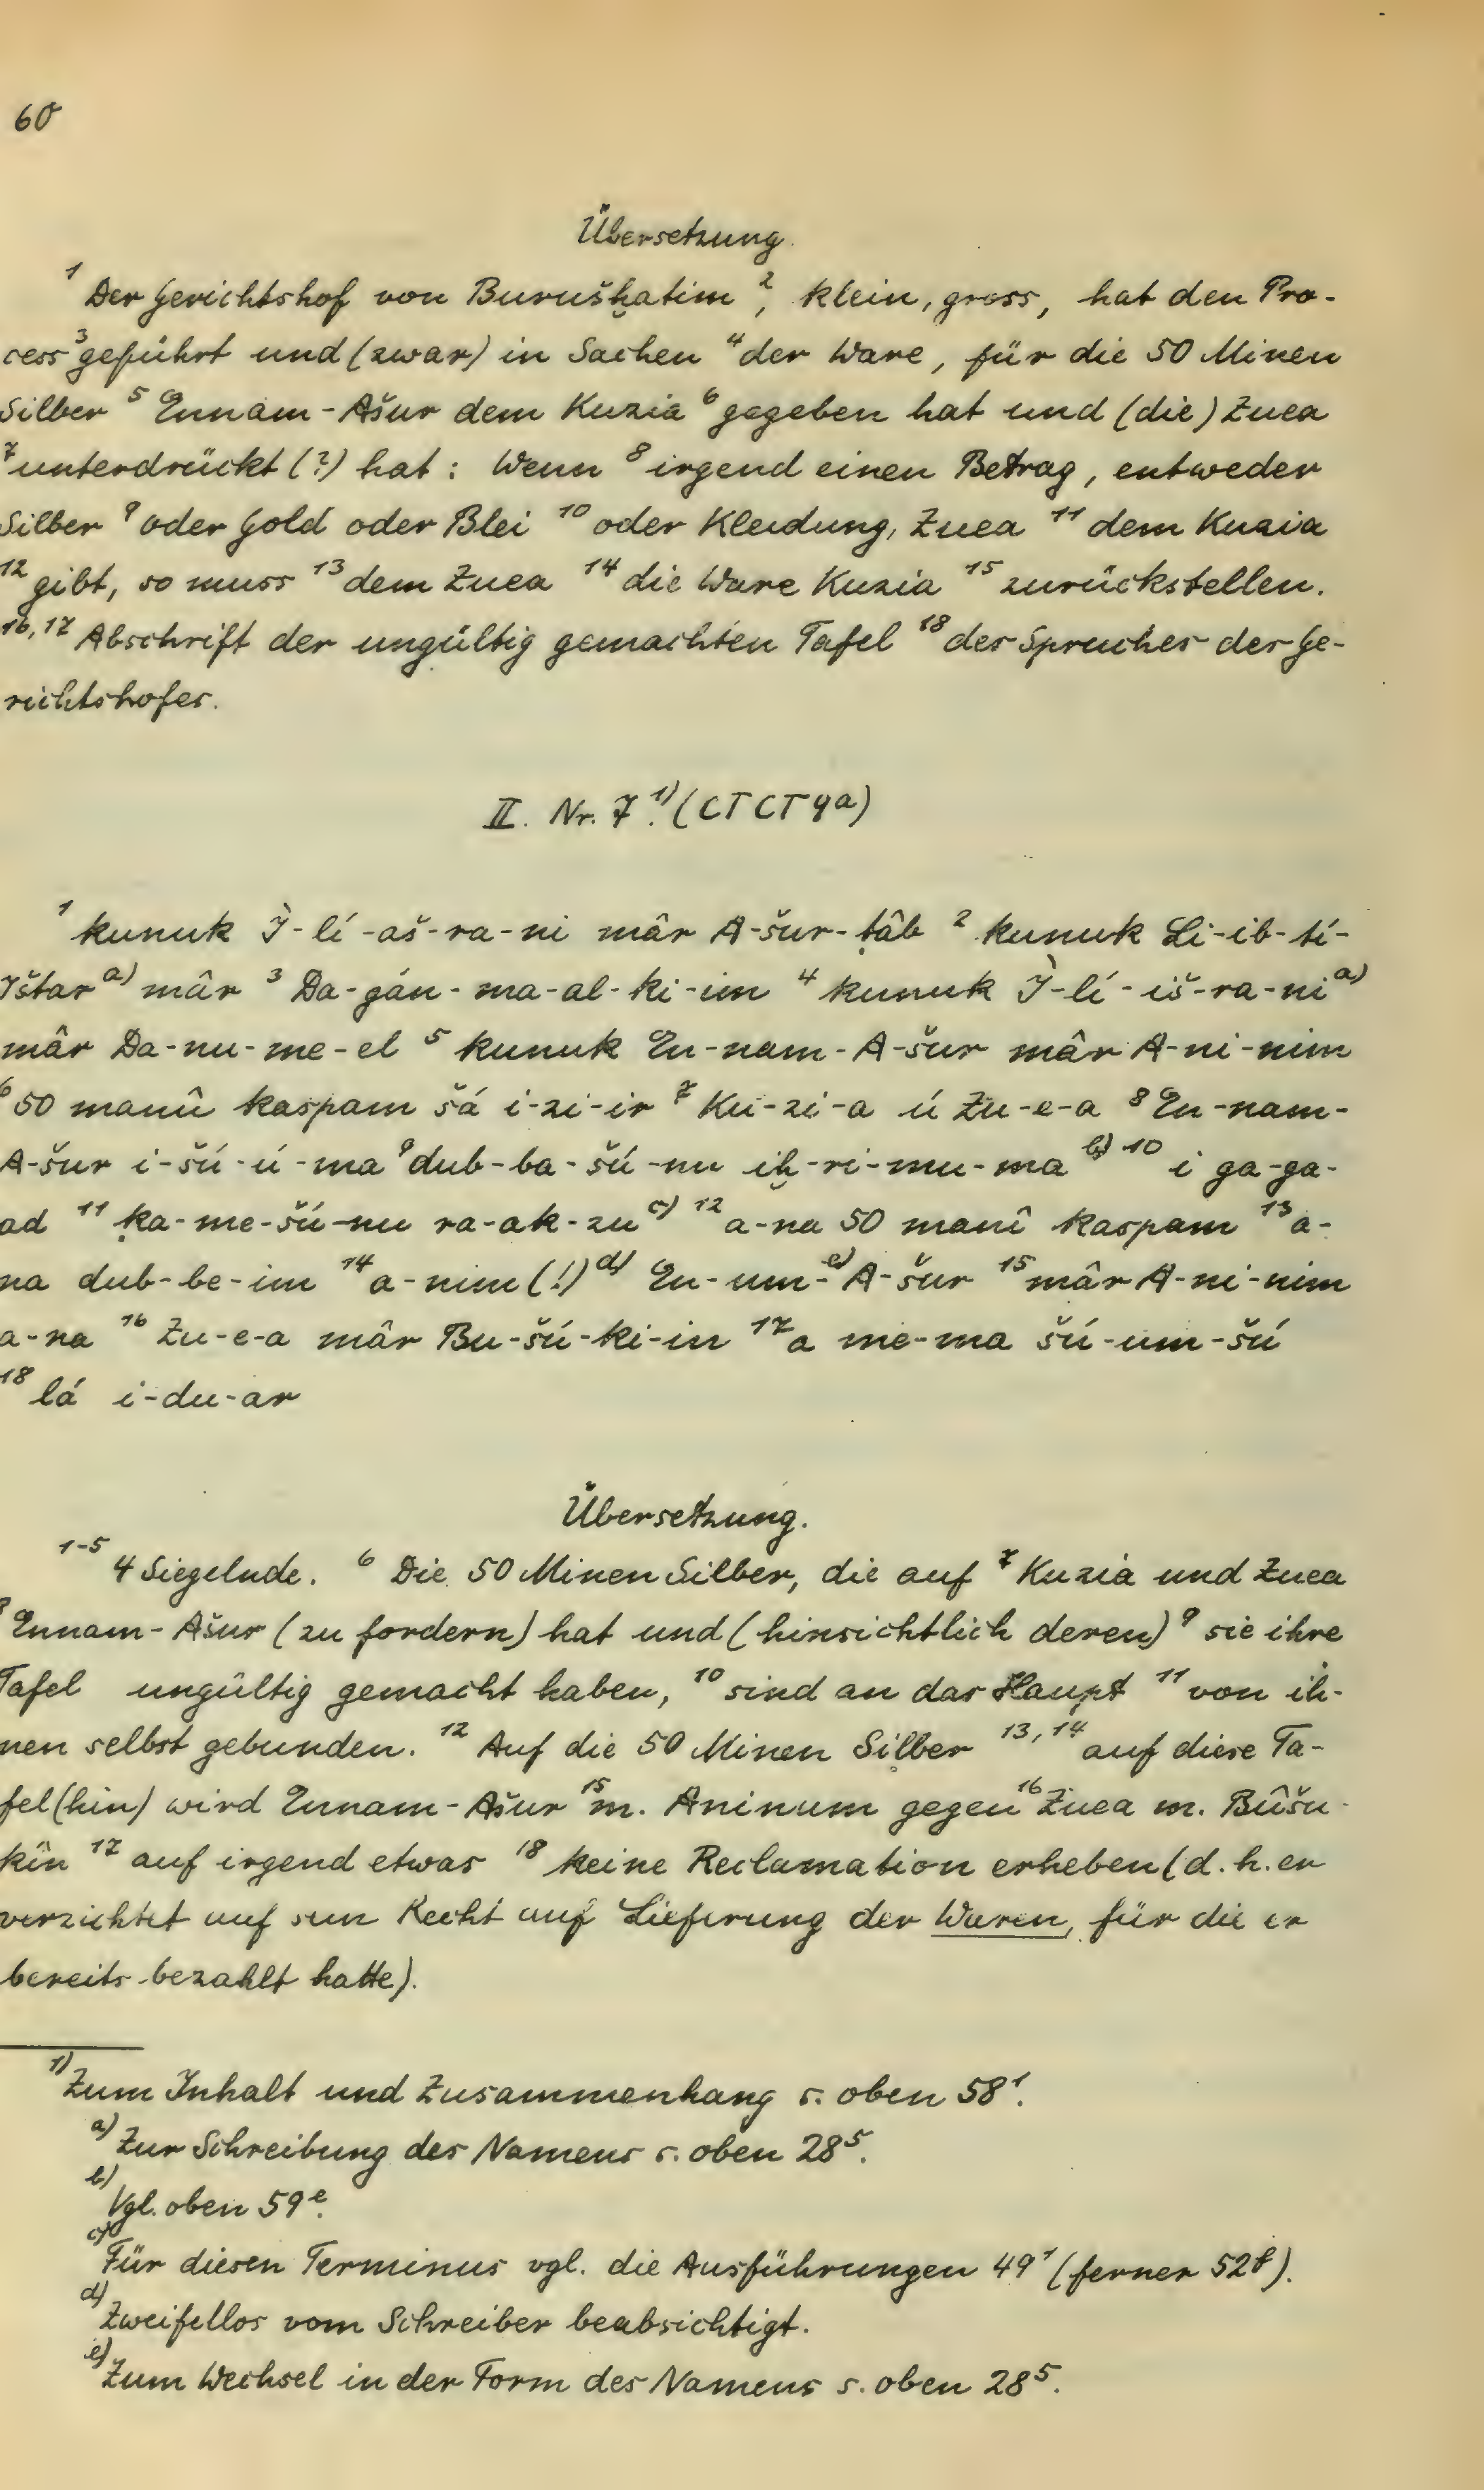 60
Übersetzung.
¹ Der Gerichtshof von Burušḫatim ², klein, gross, hat den Pro-
cess ³ geführt und (zwar) in Sachen ⁴ der Ware, für die 50 Minen
Silber ⁵ Ennam-Ašur dem Kuzia ⁶ gegeben hat und (die) Zuea
⁷ unterdrückt (?) hat: Wenn ⁸ irgend einen Betrag, entweder
Silber ⁹ oder Gold oder Blei ¹⁰ oder Kleidung, Zuea ¹¹ dem Kuzia
¹² gibt, so muss ¹³ dem Zuea ¹⁴ die Ware Kuzia ¹⁵ zurückstellen.
¹⁶,¹⁷ Abschrift der ungültig gemachten Tafel ¹⁸ des Spruches des Ge-
richtshofes.
II. Nr. 7.¹⁾ (CTCT 9a)
¹ kunuk Ì-lí-aš-ra-ni mâr A-šur-ṭâb ² kunuk Li-ib-tí-
Ištar ᵃ⁾ mâr ³ Da-gán-ma-al-ki-im ⁴ kunuk Ì-lí-iš-ra-ni ᵃ⁾
mâr Da-nu-me-el ⁵ kunuk En-nam-A-šur mâr A-ni-nim
⁶ 50 manû kaspam šá i-zi-ir ⁷ Ku-zi-a ú Zu-e-a ⁸ En-nam-
A-šur i-šú-ú-ma ⁹ dub-ba-šú-nu iḫ-ri-mu-ma ᵇ⁾ ¹⁰ i ga-ga-
ad ¹¹ ḳa-me-šú-nu ra-ak-zu ᶜ⁾ ¹² a-na 50 manî kaspam ¹³ a-
na dub-be-im ¹⁴ a-nim (!) ᵈ⁾ En-um-ᵉ⁾A-šur ¹⁵ mâr A-ni-nim
a-na ¹⁶ Zu-e-a mâr Bu-šú-ki-in ¹⁷ a me-ma šú-um-šú
¹⁸ lá i-du-ar
Übersetzung.
¹⁻⁵ 4 Siegelnde. ⁶ Die 50 Minen Silber, die auf ⁷ Kuzia und Zuea
⁸ Ennam-Ašur (zu fordern) hat und (hinsichtlich deren) ⁹ sie ihre
Tafel ungültig gemacht haben, ¹⁰ sind an das Haupt ¹¹ von ih-
nen selbst gebunden. ¹² Auf die 50 Minen Silber ¹³,¹⁴ auf diese Ta-
fel (hin) wird Ennam-Ašur ¹⁵ m. Aninum gegen ¹⁶ Zuea m. Bûšu-
kîn ¹⁷ auf irgend etwas ¹⁸ keine Reclamation erheben (d. h. er
verzichtet auf sein Recht auf Lieferung der Waren, für die er
bereits bezahlt hatte).
¹⁾ Zum Inhalt und Zusammenhang s. oben 58¹.
ᵃ⁾ Zur Schreibung des Namens s. oben 28⁵.
ᵇ⁾ Vgl. oben 59ᵉ.
ᶜ⁾ Für diesen Terminus vgl. die Ausführungen 49¹ (ferner 52ᶠ).
ᵈ⁾ Zweifellos vom Schreiber beabsichtigt.
ᵉ⁾ Zum Wechsel in der Form des Namens s. oben 28⁵.